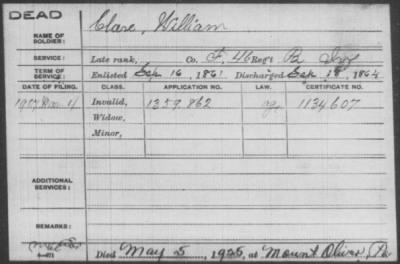 DEAD
NAME OF SOLDIER: Clare, William
SERVICE: Late rank, Co. F, 46 Reg't Pa Inf
TERM OF SERVICE: Enlisted Sep. 16, 1861 Discharged Sep. 18, 1864
DATE OF FILING. CLASS. APPLICATION NO. LAW. CERTIFICATE NO.
1907 Mar. 4 Invalid, 1359.862 1134607
Widow,
Minor,
ADDITIONAL SERVICES:
REMARKS:
Died May 5, 1925, at Mount Oliver, Pa